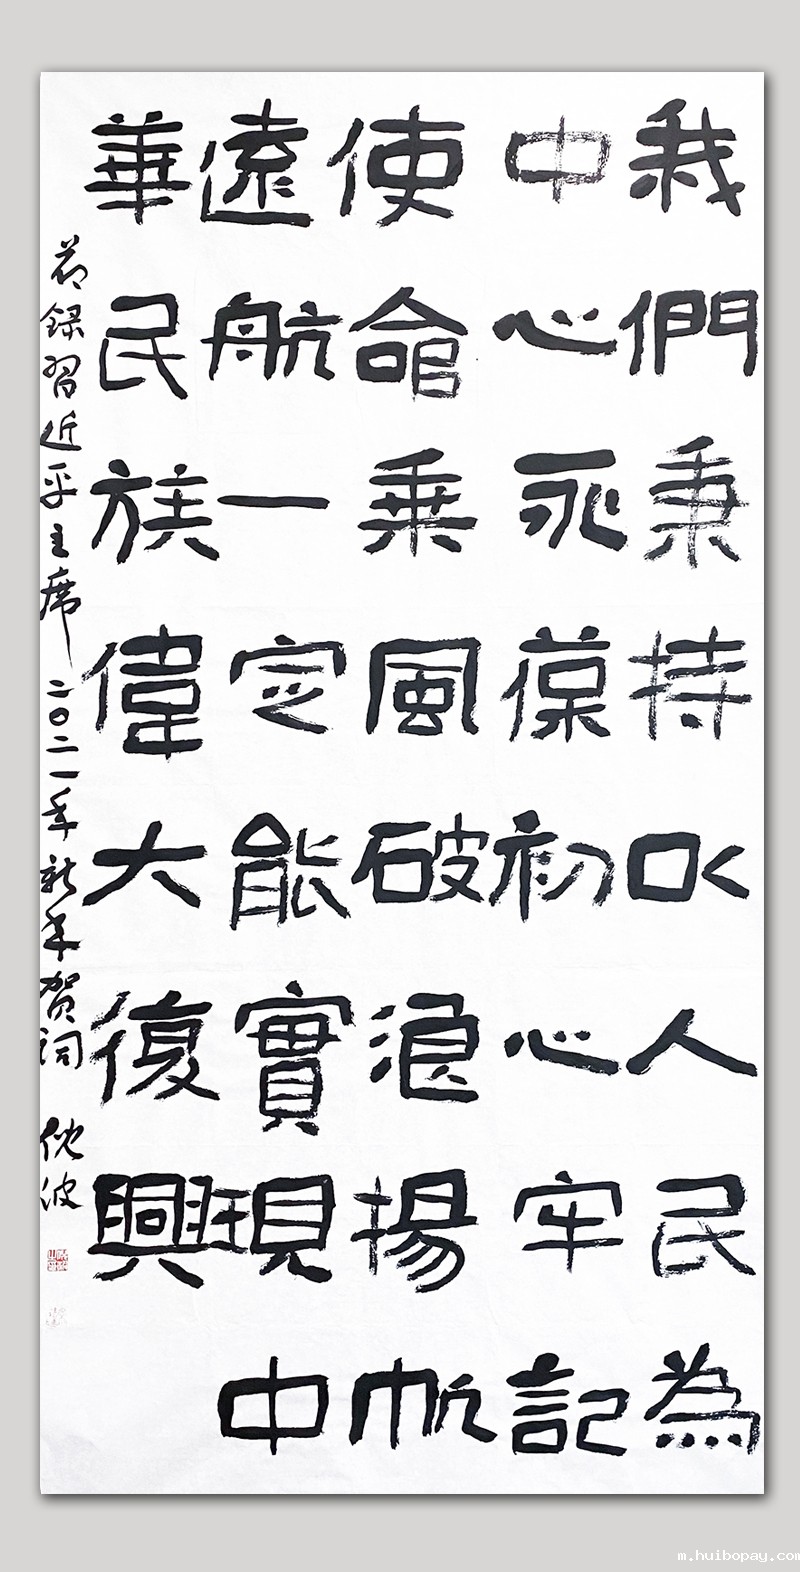 我們秉持以人民為
中心永葆初心牢記
使命乘風破浪揚帆
遠航一定能實現中
華民族偉大復興
節録習近平主席二〇二一年新年贺词
波
m.huibopay.com